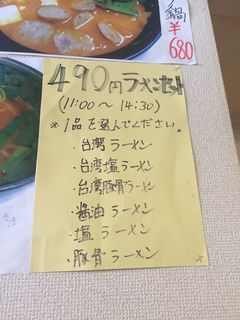 鍋
¥680
490円ラーメンセット
(11:00〜14:30)
※1品を選んでください。
・台湾ラーメン
・台湾塩ラーメン
・台湾豚骨ラーメン
・醤油ラーメン
・塩ラーメン
・豚骨ラーメン